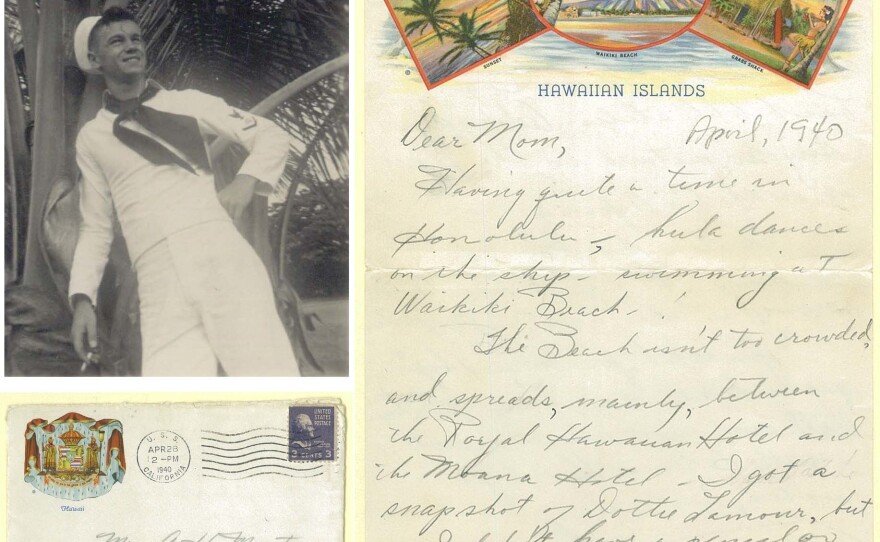 SUNSET
WAIKIKI BEACH
GRASS SHACK
HAWAIIAN ISLANDS
Dear Mom,
April, 1940
Having quite a time in
Honolulu, hula dances
on the ship - swimming at
Waikiki Beach - !
The Beach isn't too crowded,
and spreads, mainly, between
the Royal Hawaiian Hotel and
the Moana Hotel - I got a
snapshot of Dottie Lamour, but
U. S. S.
APR 28
12 - PM
1940
CALIFORNIA
UNITED
STATES
POSTAGE
3 CENTS 3
Hawaii